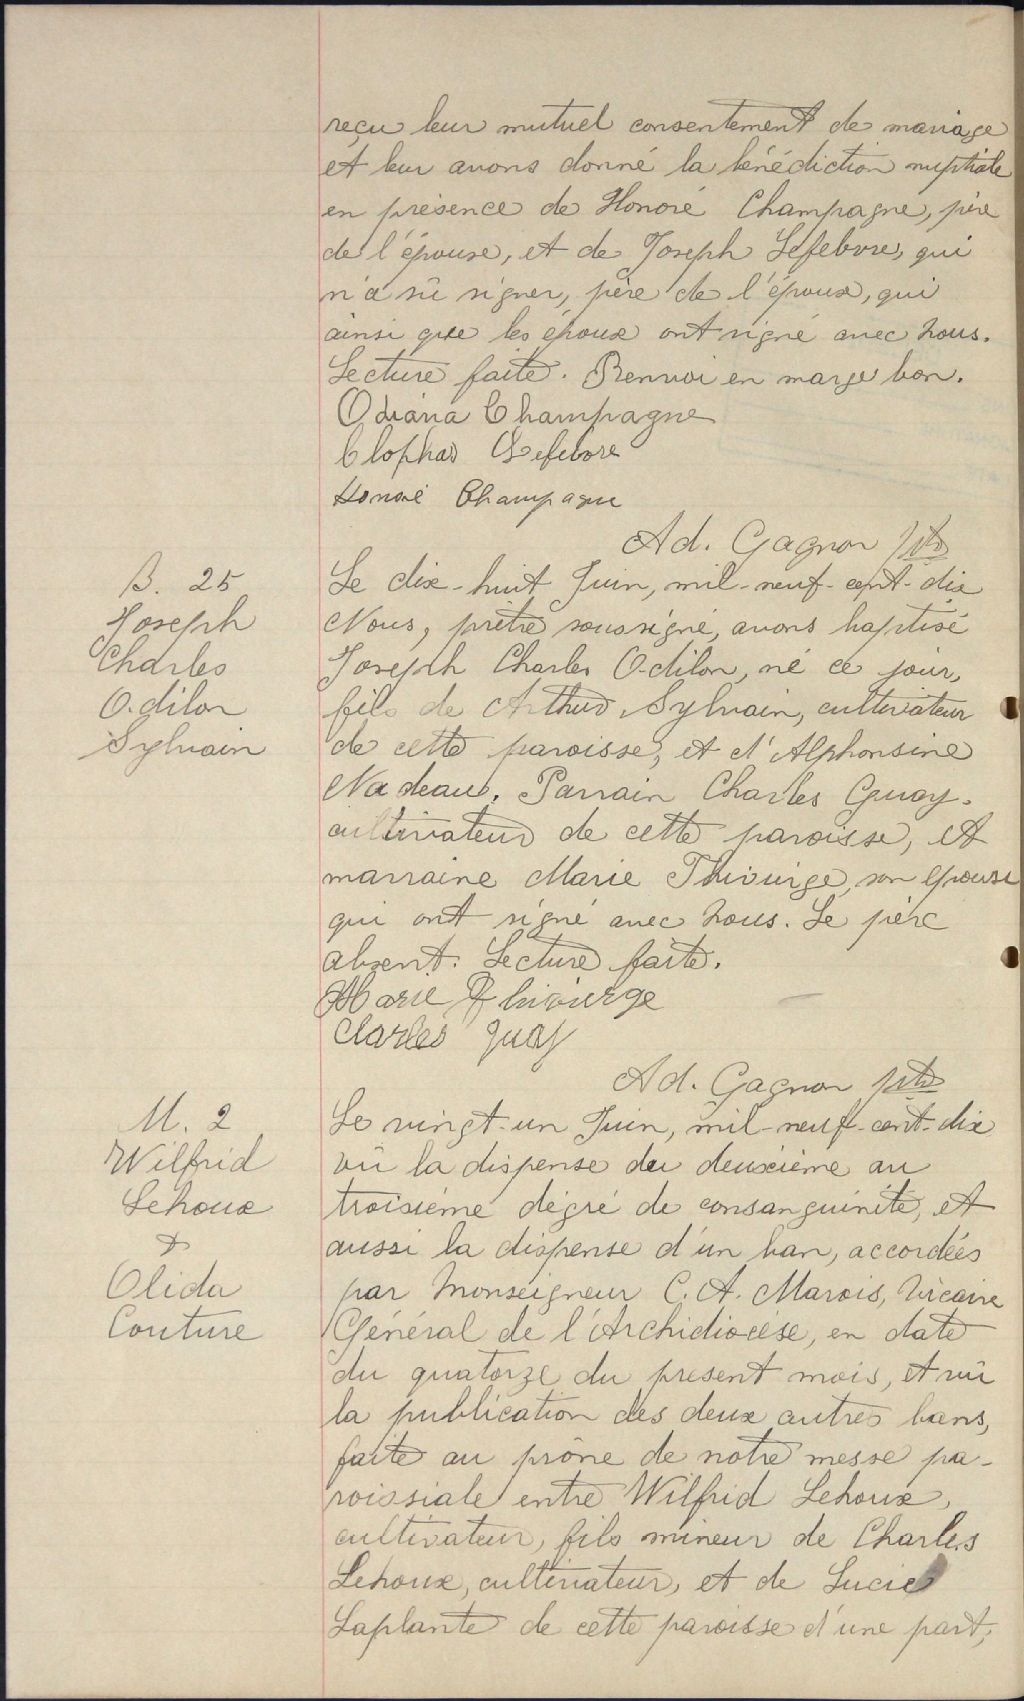 reçu leur mutuel consentement de mariage
et leur avons donné la bénédiction nuptiale
en présence de Honoré Champagne, père
de l'épouse, et de Joseph Lefebvre, qui
n'a sû signer, père de l'époux, qui
ainsi que les époux ont signé avec nous.
Lecture faite. Renvoi en marge bon.
Odiana Champagne
Clophas Lefebvre
Honoré Champagne
Ad. Gagnon ptr
B. 25
Joseph
Charles
Odilon
Sylvain
Le dix-huit Juin, mil-neuf-cent-dix
Nous, prêtre soussigné, avons baptisé
Joseph Charles Odilon, né ce jour,
fils de Arthur Sylvain, cultivateur
de cette paroisse, et d'Alphonsine
Nadeau. Parrain Charles Guay.
cultivateur de cette paroisse, et
marraine Marie Thivierge, son épouse
qui ont signé avec nous. Le père
absent. Lecture faite.
Marie Thivierge
Charles Guay
Ad. Gagnon ptr
M. 2
Wilfrid
Lehoux
&
Olida
Couture
Le vingt-un Juin, mil-neuf-cent-dix
vû la dispense du deuxième au
troisième dégré de consanguinité, et
aussi la dispense d'un ban, accordées
par Monseigneur C. A. Marois, Vicaire
Général de l'Archidiocèse, en date
du quatorze du present mois, et vû
la publication des deux autres bans,
faite au prône de notre messe pa-
roissiale entre Wilfrid Lehoux,
cultivateur, fils mineur de Charles
Lehoux, cultivateur, et de Lucie
Laplante de cette paroisse d'une part,